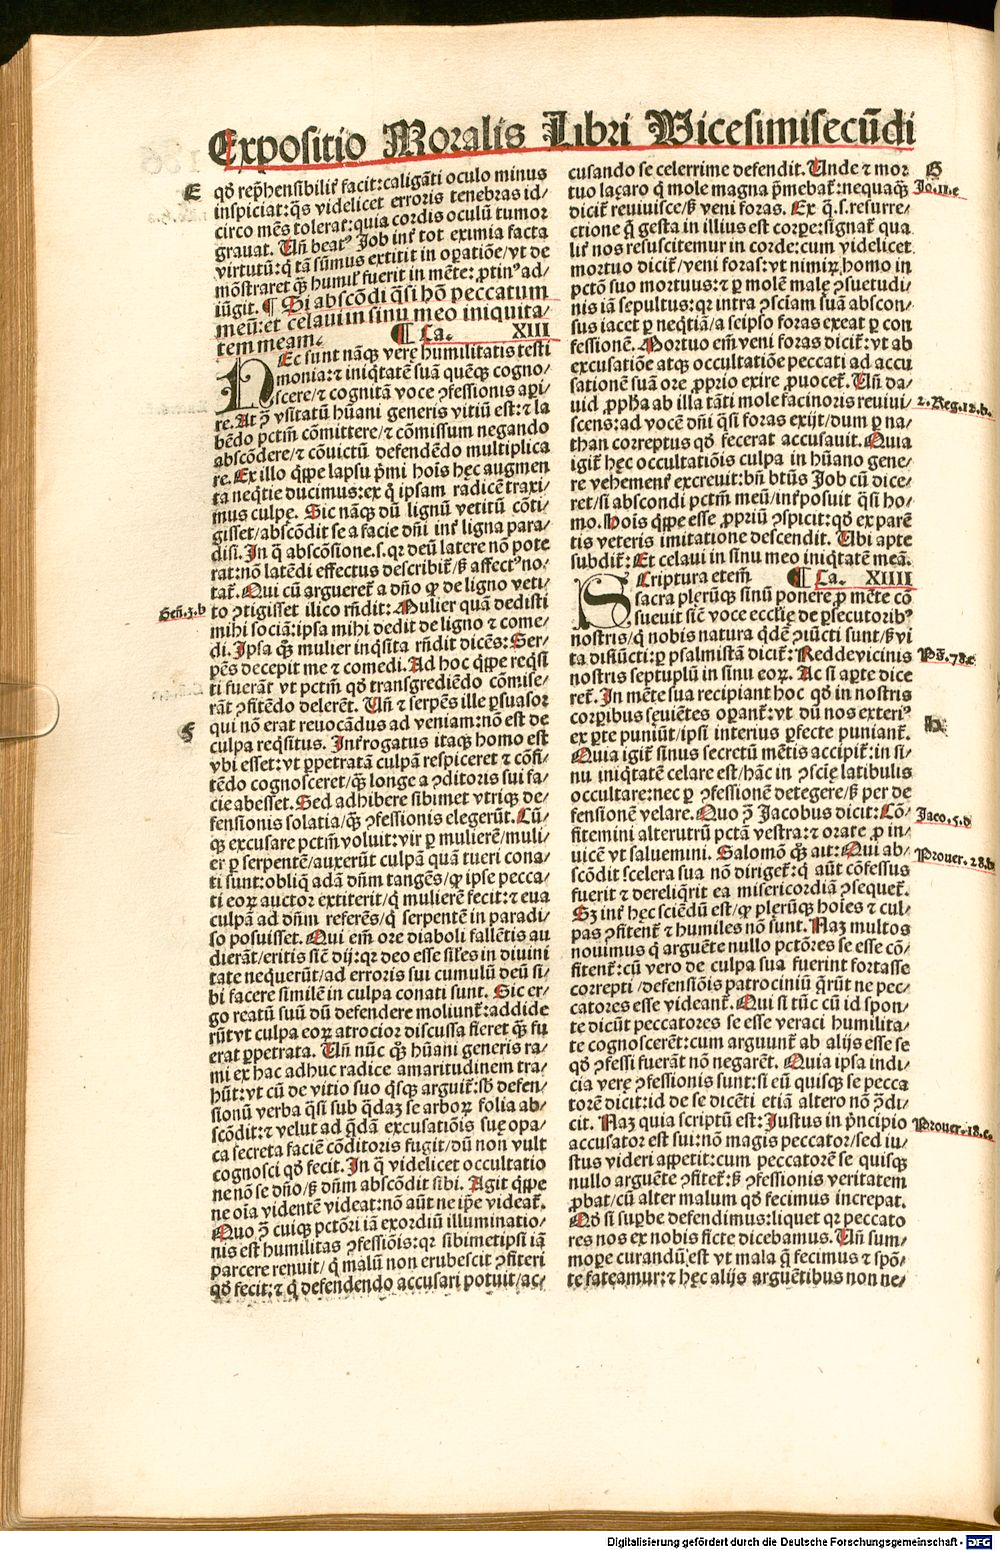 Expositio Moralis Libri Vicesimisecūdi
E
qđ rep̄hensibilit̄ facit: caligāti oculo minus
inspiciat: q̄s videlicet erroris tenebras id/
circo mēs tolerat: quia cordis oculū tumor
grauat. Uñ beatꝰ Job int̄ tot eximia facta
virtutū: q̄ tā sūmus extitit in oꝑatiōe/ vt de
mōstraret q̄ꝫ humil̓ fuerit in mēte: ꝓtinꝰ ad/
iūgit. ¶ Si abscōdi q̄si hō peccatum
meū: et celaui in sinu meo iniquita/
tem meam. ¶ Ca. XIII
HEc sunt nāqꝫ verę humilitatis testi
monia: ⁊ iniq̄tatē suā quēqꝫ cogno/
scere/ ⁊ cognitā voce ꝯfessionis aꝑi/
re. At ꝯ̄ vsitatū hūani generis vitiū est: ⁊ la
bēdo pctm̄ cōmittere/ ⁊ cōmissum negando
abscōdere/ ⁊ cōuictū defendēdo multiplica
re. Ex illo q̄ppe lapsu p̄mi hoīs hęc augmen
ta neq̄tie ducimus: ex q̄ ipsam radicē traxi/
mus culpę. Sic nāqꝫ dū lignū vetitū cōti/
gisset/ abscōdit se a facie dn̄i int̄ ligna para/
disi. In q̄ abscōsione .s. qꝛ deū latere nō pote
rat: nō latēdi effectus describit̄/ ß affectꝰ no/
tat̄. Qui cū argueret̄ a dn̄o ꝙ de ligno veti/
to ꝯtigisset ilico rn̄dit: Mulier quā dedisti
Geñ.3.b
mihi sociā: ipsa mihi dedit de ligno ⁊ come/
di. Ipsa q̄ꝫ mulier inq̄sita rn̄dit dicēs: Ser/
pēs decepit me ⁊ comedi. Ad hoc q̄ppe req̄si
ti fuerāt vt pctm̄ qđ transgrediēdo cōmise/
rāt ꝯfitēdo delerēt. Uñ ⁊ serpēs ille ꝑsuasor
F
qui nō erat reuocādus ad veniam: nō est de
culpa req̄situs. Int̄rogatus itaqꝫ homo est
vbi esset: vt ꝑpetratā culpā respiceret ⁊ cōfi/
tēdo cognosceret/ q̄ꝫ longe a ꝯditoris sui fa/
cie abesset. Sed adhibere sibimet vtriqꝫ de/
fensionis solatia/ q̄ꝫ ꝯfessionis elegerūt. Cū/
qꝫ excusare pctm̄ voluit: vir ꝑ mulierē/ muli/
er ꝑ serpentē/ auxerūt culpā quā tueri cona/
ti sunt: obliq̄ adā dn̄m tangēs/ ꝙ ipse pecca/
ti eoꝝ auctor extiterit/ q̄ mulierē fecit: ⁊ eua
culpā ad dn̄m referēs/ q̄ serpentē in paradi/
so posuisset. Qui em̄ ore diaboli fallētis au
dierāt/ eritis sic̄ dij: qꝛ deo esse sil̓es in diuini
tate nequerūt/ ad erroris sui cumulū deū si/
bi facere similē in culpa conati sunt. Sic er/
go reatū suū dū defendere moliunt̄: addide
rūt vt culpa eoꝝ atrocior discussa fieret q̄ꝫ fu
erat ꝑpetrata. Uñ nūc q̄ꝫ hūani generis ra/
mi ex hac adhuc radice amaritudinem tra/
hūt: vt cū de vitio suo q̄sqꝫ arguit̄: sб defen/
sionū verba q̄si sub q̄daꝫ se arboꝝ folia ab/
scōdit: ⁊ velut ad q̄dā excusatiōis suę opa/
ca secreta faciē cōditoris fugit/ dū non vult
cognosci qđ fecit. In q̄ videlicet occultatio
ne nō se dn̄o/ ß dn̄m abscōdit sibi. Agit q̄ppe
ne oīa videntē videat: nō aūt ne ip̄e videat̄.
Quo ꝯ̄ cuiqꝫ pctōri iā exordiū illuminatio/
nis est humilitas ꝯfessiōis: qꝛ sibimetipsi iā
parcere renuit/ q̄ malū non erubescit ꝯfiteri
qđ fecit: ⁊ q̄ defendendo accusari potuit/ ac/
cusando se celerrime defendit. Unde ⁊ mor
G
tuo laçaro q̄ mole magna p̄mebat̄: nequaq̄ꝫ
Jo.11.e
dicit̄ reuiuisce/ ß veni foras. Ex q̄ .s. resurre/
ctione q̄ gesta in illius est corꝑe: signat̄ qua
lit̄ nos resuscitemur in corde: cum videlicet
mortuo dicit̄/ veni foras: vt nimiꝝ homo in
pctō suo mortuus: ⁊ ꝑ molē malę ꝯsuetudi/
nis iā sepultus: qꝛ intra ꝯsciam suā abscon/
sus iacet ꝑ neq̄tiā/ a seipso foras exeat ꝑ con
fessionē. Mortuo em̄ veni foras dicit̄: vt ab
excusatiōe atqꝫ occultatiōe peccati ad accu
sationē suā ore ꝓprio exire ꝓuocet̄. Uñ da/
uid ꝓpħa ab illa tāti mole facinoris reuiui/
2.Reg.12.b.
scens: ad vocē dn̄i q̄si foras exijt/ dum ꝑ na/
than correptus qđ fecerat accusauit. Quia
igit̄ hęc occultatiōis culpa in hūano gene/
re vehement̄ excreuit: bn̄ btūs Job cū dice/
ret/ si abscondi pctm̄ meū/ int̄posuit q̄si ho/
mo. Hoīs q̄ppe esse ꝓpriū ꝯspicit: qđ ex parē
tis veteris imitatione descendit. Ubi apte
subdit̄: Et celaui in sinu meo iniq̄tatē meā.
SCriptura etem̄ ¶ Ca. XIIII
sacra plerūqꝫ sinū ponere ꝓ mēte cō
sueuit sic̄ voce ecclīe de ꝑsecutorib꜒
nostris/ q̄ nobis natura q̄dē ꝯiūcti sunt/ ß vi
ta disiūcti: ꝑ psalmistā dicit̄: Redde vicinis
Pš.78.c
nostris septuplū in sinu eoꝝ. Ac si aꝑte dice
ret̄. In mēte sua recipiant hoc qđ in nostris
corꝑibus sęuiētes oꝑant̄: vt dū nos exteriꝰ
H
ex ꝑte puniūt/ ipsi interius ꝑfecte puniant̄.
Quia igit̄ sinus secretū mētis accipit̄: in si/
nu iniq̄tatē celare est/ hāc in ꝯscię latibulis
occultare: nec ꝑ ꝯfessionē detegere/ ß per de
fensionē velare. Quo ꝯ̄ Jacobus dicit: Cō/
Jaco.5.d
fitemini alterutrū pctā vestra: ⁊ orate ꝓ in/
uicē vt saluemini. Salomō q̄ꝫ ait: Qui ab/
Prouer.28.b
scōdit scelera sua nō diriget̄: q̄ aūt cōfessus
fuerit ⁊ dereliq̄rit ea misericordiā ꝯsequet̄.
Sꝫ int̄ hęc sciēdū est/ ꝙ plerūqꝫ hoīes ⁊ cul/
pas ꝯfitent̄ ⁊ humiles nō sunt. Naꝫ multos
nouimus q̄ arguēte nullo pctōres se esse cō/
fitent̄: cū vero de culpa sua fuerint fortasse
correpti/ defensiōis patrociniū q̄rūt ne pec/
catores esse videant̄. Qui si tūc cū id spon/
te dicūt peccatores se esse veraci humilita/
te cognoscerēt: cum arguunt̄ ab alijs esse se
qđ ꝯfessi fuerāt nō negarēt. Quia ipsa indi/
cia verę ꝯfessionis sunt: si eū quisqꝫ se pecca
torē dicit: id de se dicēti etiā altero nō ꝯ̄di/
cit. Naꝫ quia scriptū est: Justus in p̄ncipio
Prouer.18.c.
accusator est sui: nō magis peccator/ sed iu/
stus videri appetit: cum peccatorē se quisqꝫ
nullo arguēte ꝯfitet̄: ß ꝯfessionis veritatem
ꝓbat/ cū alter malum qđ fecimus increpat.
Qđ si suꝑbe defendimus: liquet qꝛ peccato
res nos ex nobis ficte dicebamus. Uñ sum/
moꝑe curandū est vt mala q̄ fecimus ⁊ spō/
te fateamur: ⁊ hęc alijs arguētibus non ne/
Digitalisierung gefördert durch die Deutsche Forschungsgemeinschaft - DFG